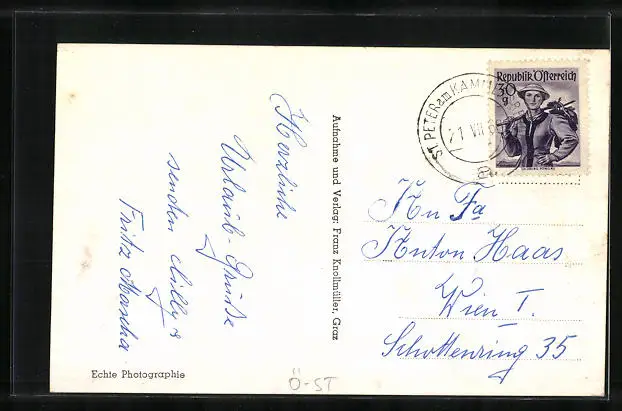 Herzliche
Urlaub-Grüße
senden Milly &
Fritz Mascha
Aufnahme und Verlag: Franz Knollmüller, Graz
Echte Photographie
Ö-ST
Republik Österreich
30
g
ST. PETER am KAMM
21 VII
An Fa
Anton Haas
Wien I.
Schottenring 35